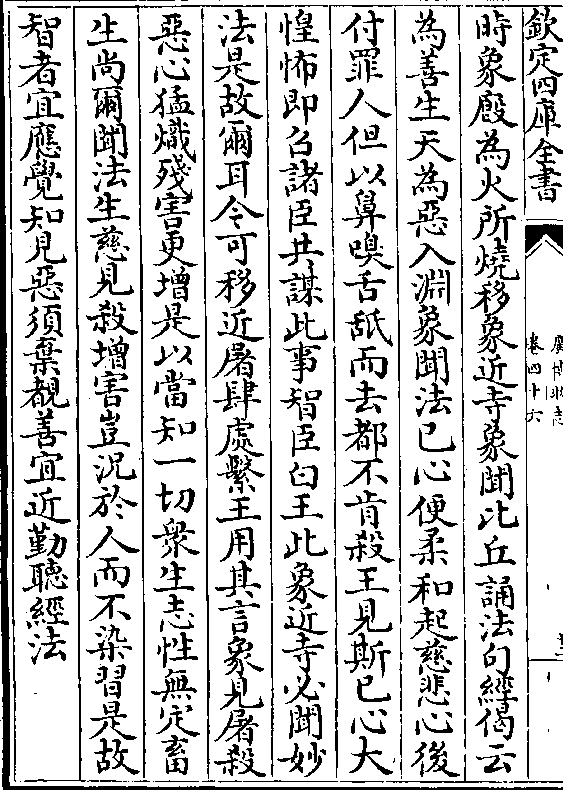 欽定四庫全書
卷四十六
時象廄為火所燒移象近寺象聞比丘誦法句經偈云
為善生天為惡入淵象聞法已心便柔和起慈悲心後
付罪人但以鼻嗅舌舐而去都不肯殺王見斯已心大
惶怖即召諸臣共謀此事智臣白王此象近寺必聞妙
法是故爾耳今可移近屠肆處繫王用其言象見屠殺
惡心猛熾殘害更增是以當知一切衆生志性無定畜
生尚爾聞法生慈見殺增害豈況於人而不染習是故
智者宜應覺知見惡須棄覩善宜近勤聽經法